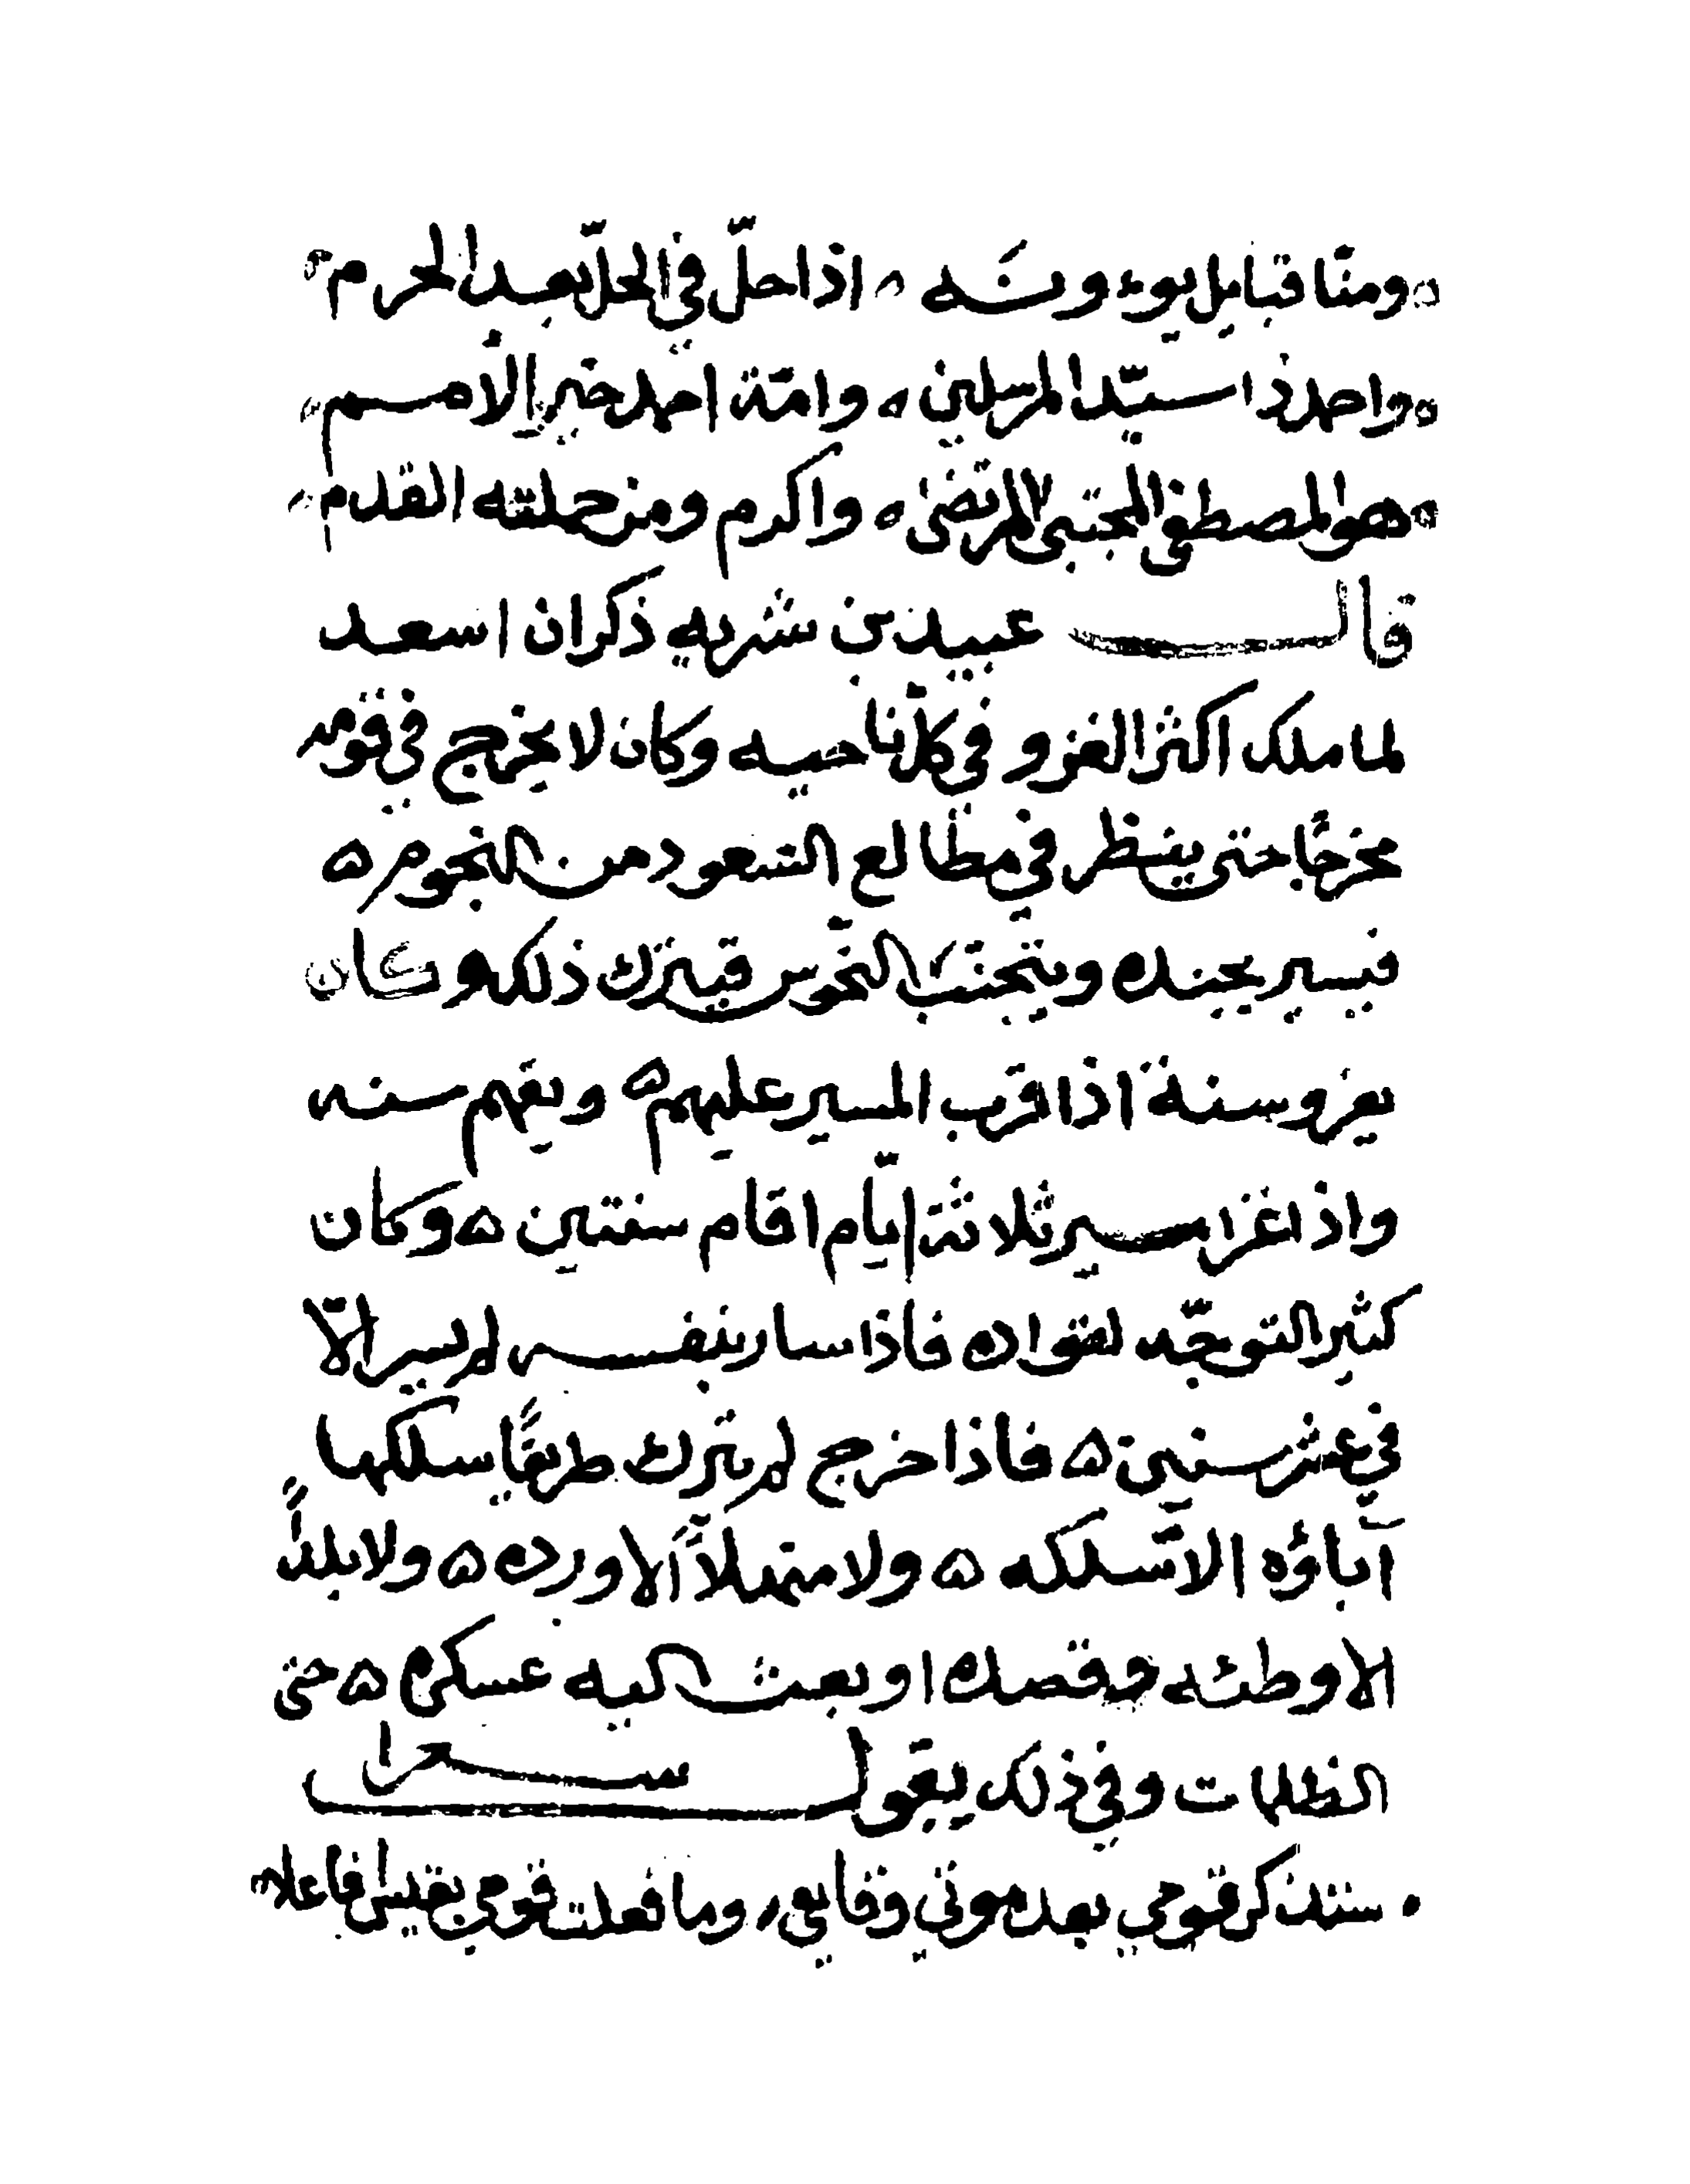 ومنّا قبايل يوءوونَه اذا حلّ في الحلّ بعد الحرم
واحمد ذا سيّد المرسلين ه وامّة احمد خير الأمم
هو المصطفى المجتبى المرتضىٰ ه واكرم ومن حملته القدم
قال عبيد بن شريه ذكر ان اسعد
لما ملك اكثر الغزو في كلّ ناحيه وكان لا يخرج في قومه
مخرجًا حتى ينظر في مطالع السّعود من النجوم ه
فيسير بجنده ويتجنّب النّحوس فيترك ذلك وكان
يغزو سنة اذا قرب المسير عليهم ه ويقهم سنه
واذا غزا مسير ثلاثة ايّام اقام سنتين ه وكان
كثير التوجّه لقواده فاذا سار بنفسه لم يسر الّا
في عشر سنين ه فاذا خرج لم يترك طريقًا سلكها
آباؤه الّا سلكه ه ولا منهلاً الا ورده ه ولا بلداً
الا وطئه وقصده او بعث اليه عسكره ه حتى
الظلمات وفي ذلك يقول شعرا
ستذكر قومي بعد موتي وقايعي وما فعلت قومي بقيس افاعلا